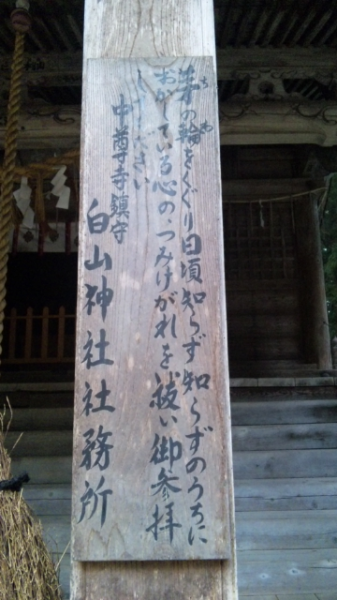 茅の輪をくぐり日頃知らず知らずのうちに
おかしている心の、つみけがれを祓い御参拝
してください
中尊寺鎮守
白山神社社務所